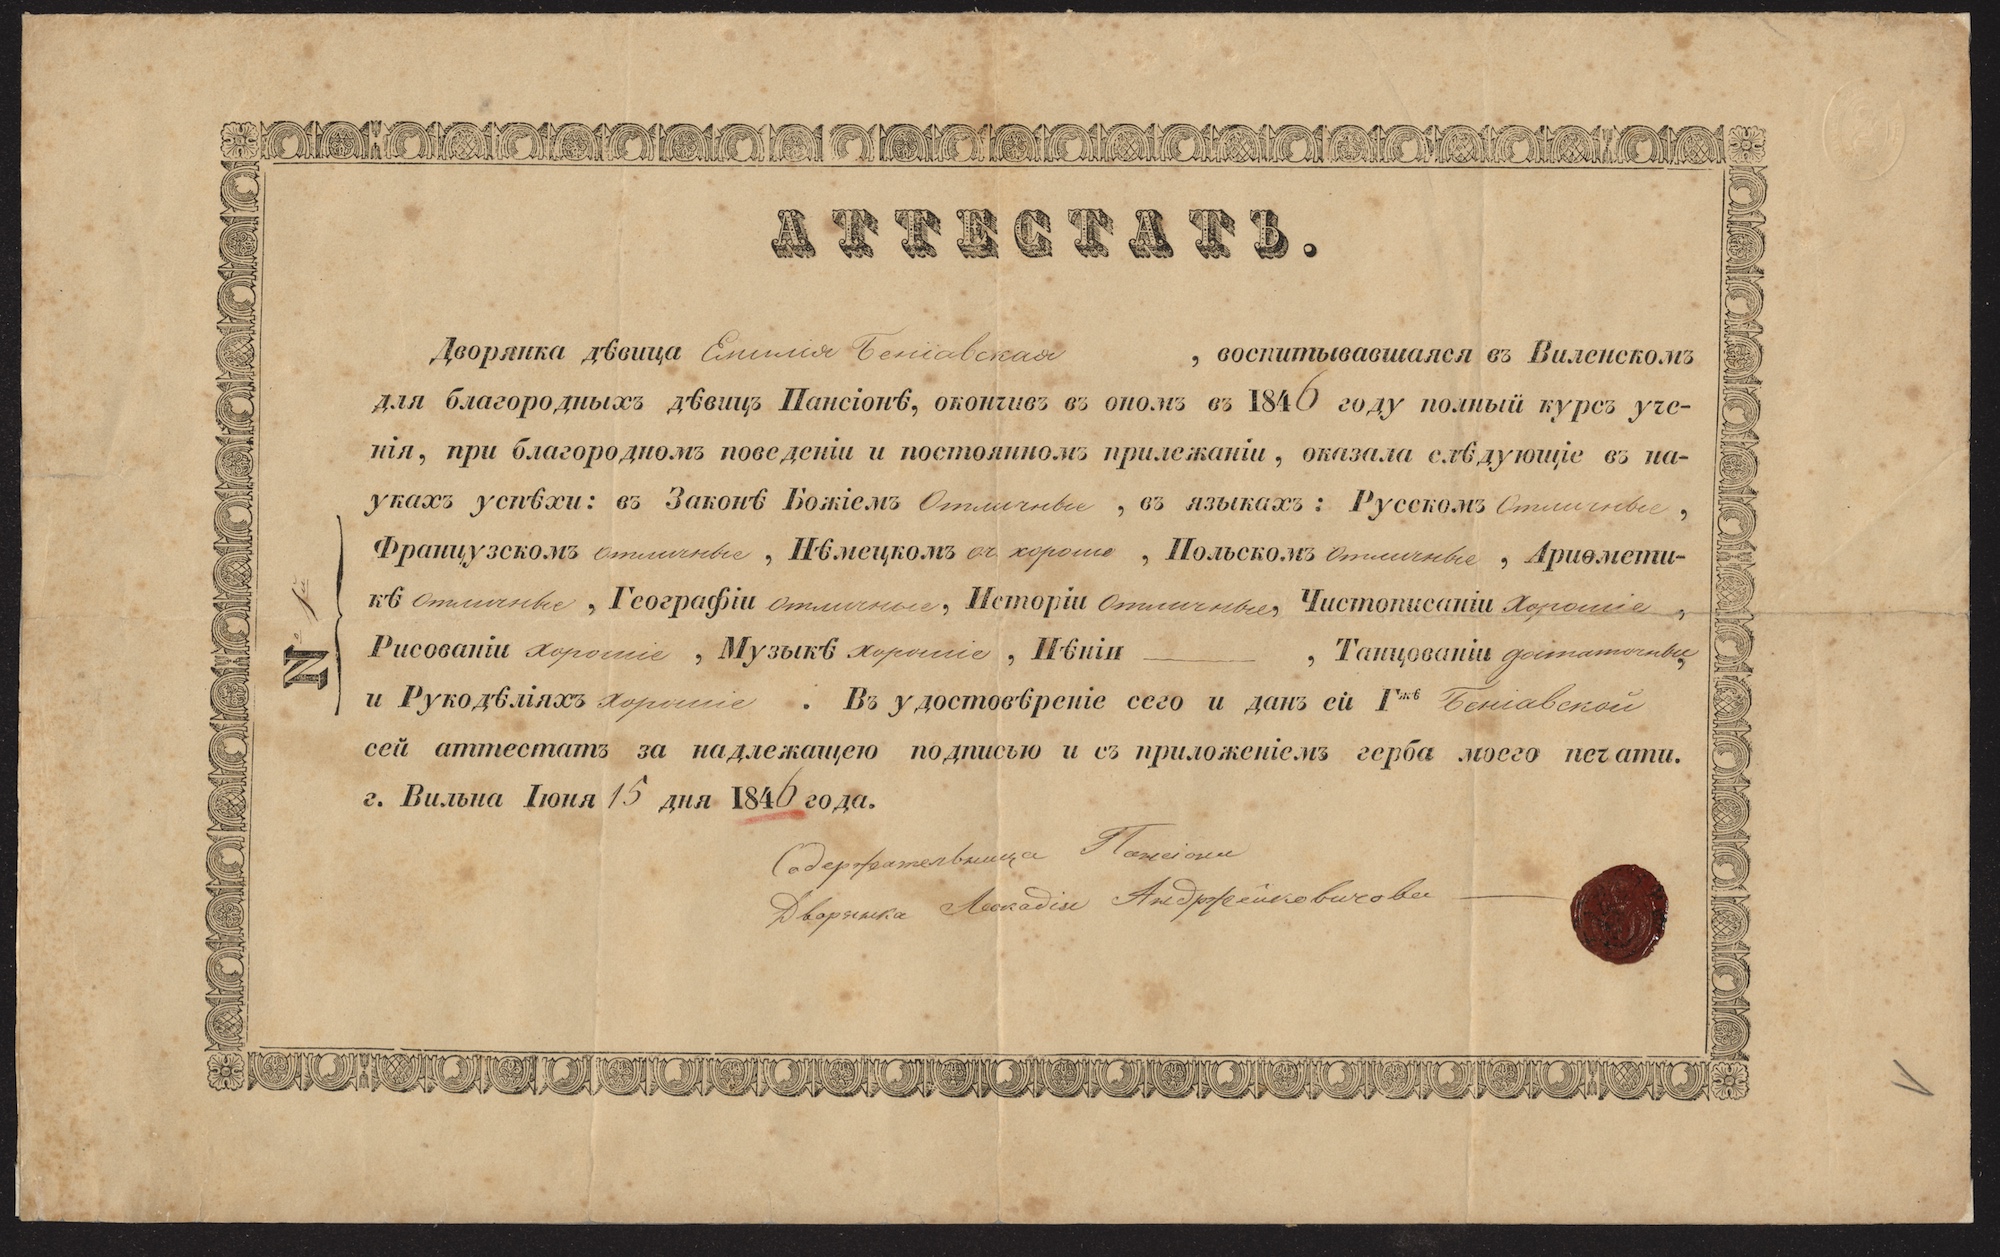 АТТЕСТАТЪ.
Дворянка дѣвица Емилія Беніавская, воспитывавшаяся въ Виленскомъ
для благородныхъ дѣвицъ Пансіонѣ, окончивъ въ ономъ въ 1846 году полный курсъ уче-
нія, при благородномъ поведеніи и постоянномъ прилежаніи, оказала слѣдующіе въ на-
укахъ успѣхи: въ Законѣ Божіемъ Отличные, въ языкахъ: Русскомъ Отличные,
Французскомъ отличные, Нѣмецкомъ оч. хорошіе, Польскомъ отличные, Ариѳмети-
кѣ отличные, Географіи отличные, Исторіи отличные, Чистописаніи хорошіе,
Рисованіи хорошіе, Музыкѣ хорошіе, Пѣніи —, Танцованіи достаточные,
и Рукодѣліяхъ хорошіе. Въ удостовѣреніе сего и данъ ей Гжѣ Беніавской
сей аттестатъ за надлежащею подписью и съ приложеніемъ герба моего печати.
г. Вильна Іюня 15 дня 1846 года.
№
Содержательница Пансіона
Дворянка Леокадія Анджейковичова